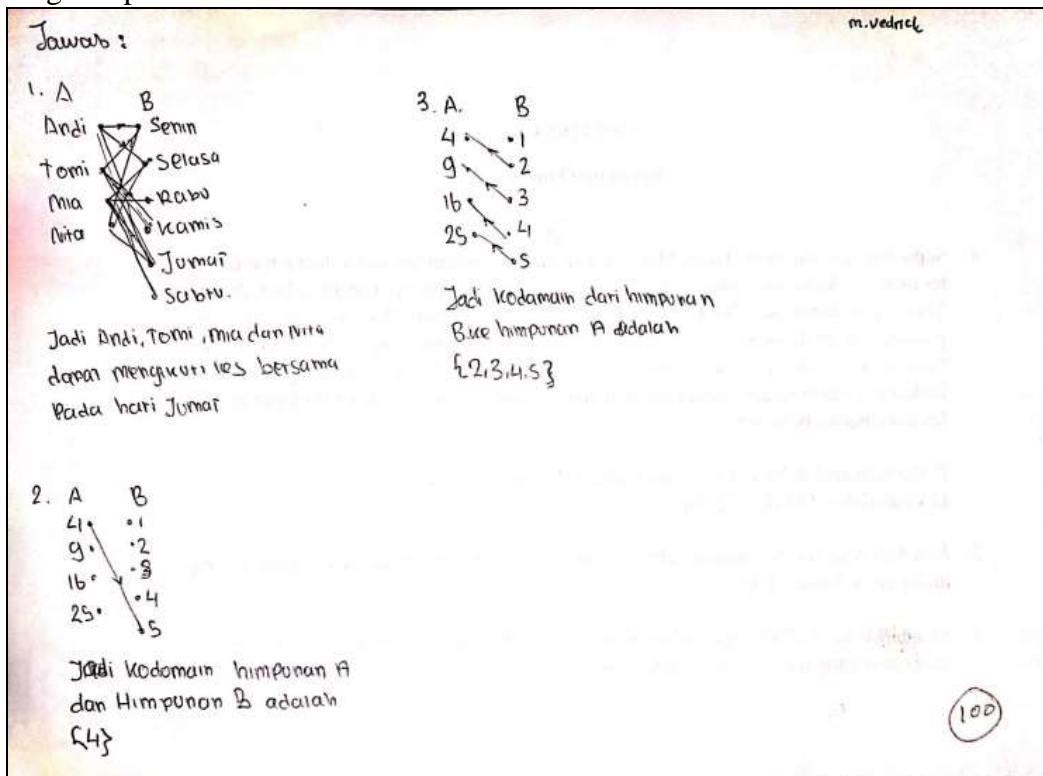 Jawab :
m.vedrick
1. A B
Andi Senin
Tomi Selasa
Mia Rabu
Nita Kamis
Jumat
Sabtu.
Jadi Andi, Tomi, Mia dan Nita
dapat mengikuti les bersama
Pada hari Jumat
3. A. B
4 1
9 2
16 3
25 4
5
Jadi kodamain dari himpunan
B ke himpunan A adalah
{2,3,4.5}
2. A B
4 1
9 2
16 3
25 4
5
Jadi kodomain himpunan A
dan Himpunan B adalah
{4}
100